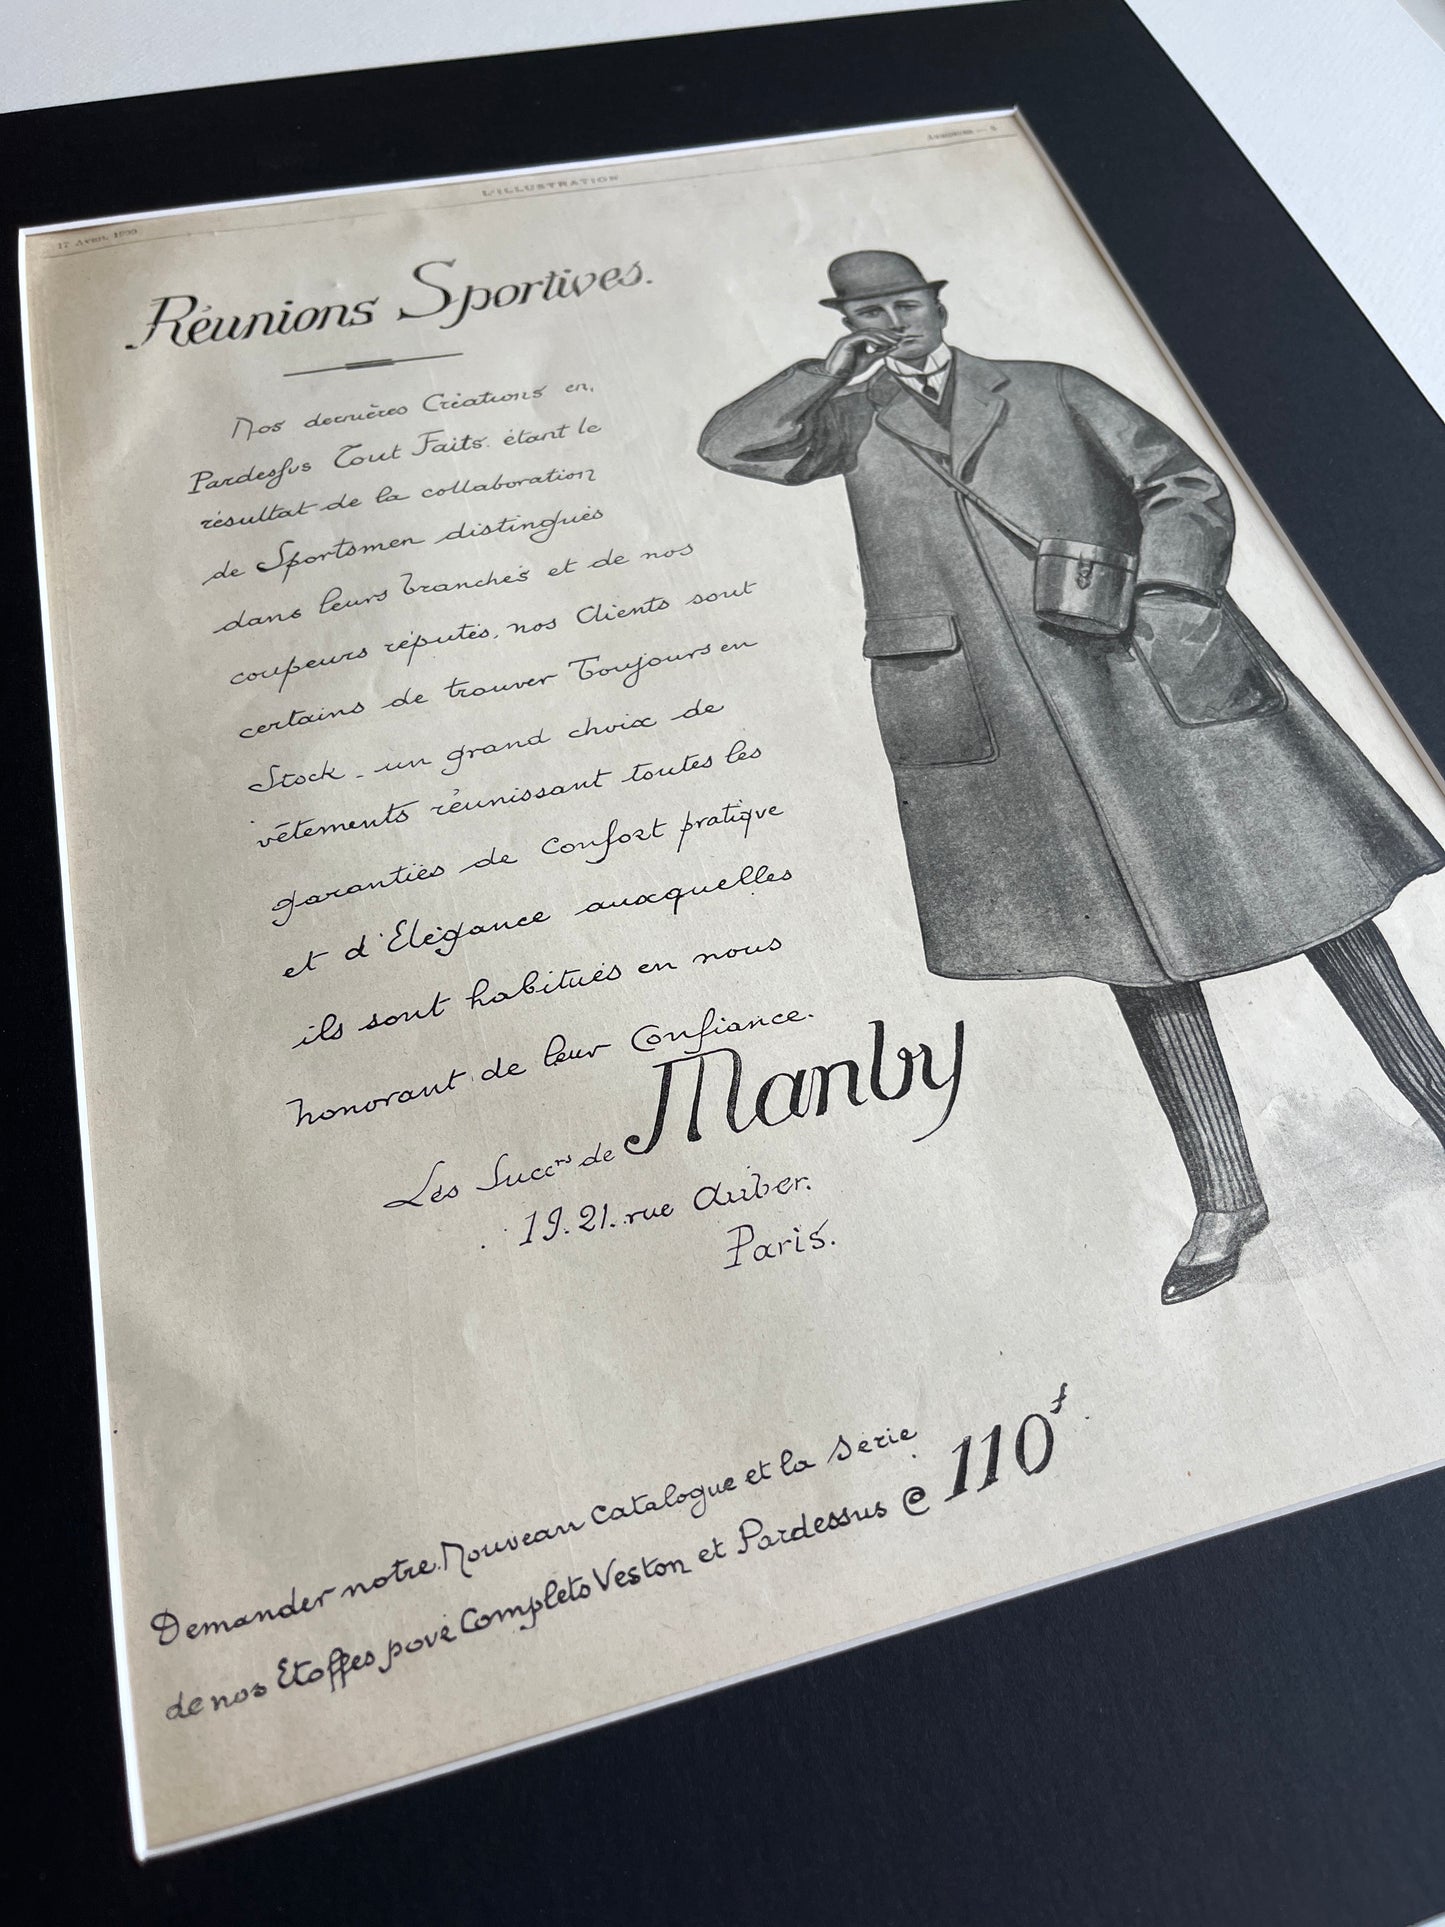 17 Avril
L'ILLUSTRATION
Réunions Sportives.
Nos dernières Créations en,
Pardessus Tout Faits. étant le
résultat de la collaboration
de Sportsmen distingués
dans leurs branches et de nos
coupeurs réputés, nos Clients sont
certains de trouver Toujours en
Stock - un grand choix de
vêtements réunissant toutes les
garanties de Confort pratique
et d'Elégance auxquelles
ils sont habitués en nous
honorant de leur Confiance.
Les Succrs de Manby
19.21. rue Auber.
Paris.
Demander notre Nouveau Catalogue et la Série
de nos Etoffes pour Complets Veston et Pardessus @ 110f.